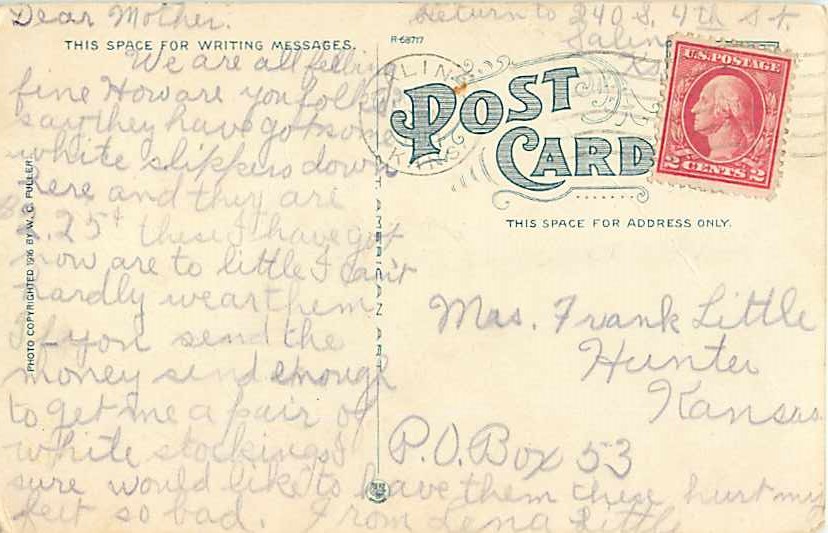 Dear Mother.
THIS SPACE FOR WRITING MESSAGES.
We are all feeling
fine How are you folks
say they have got some
white slippers down
here and they are
.25¢ these I have got
now are to little I can't
hardly wear them
If you send the
money send enough
to get me a pair of
white stockings I
sure would like to have them these hurt my
feet so bad. From Lena Little
PHOTO COPYRIGHTED 1916 BY W. C. FULLER.
AMERICAN ART
R-68717
Return to 240 S. 4th St.
Salin
POST
CARD
U.S. POSTAGE
2 CENTS 2
KANS.
THIS SPACE FOR ADDRESS ONLY.
Mrs. Frank Little
Hunter
Kansas
P.O. Box 53